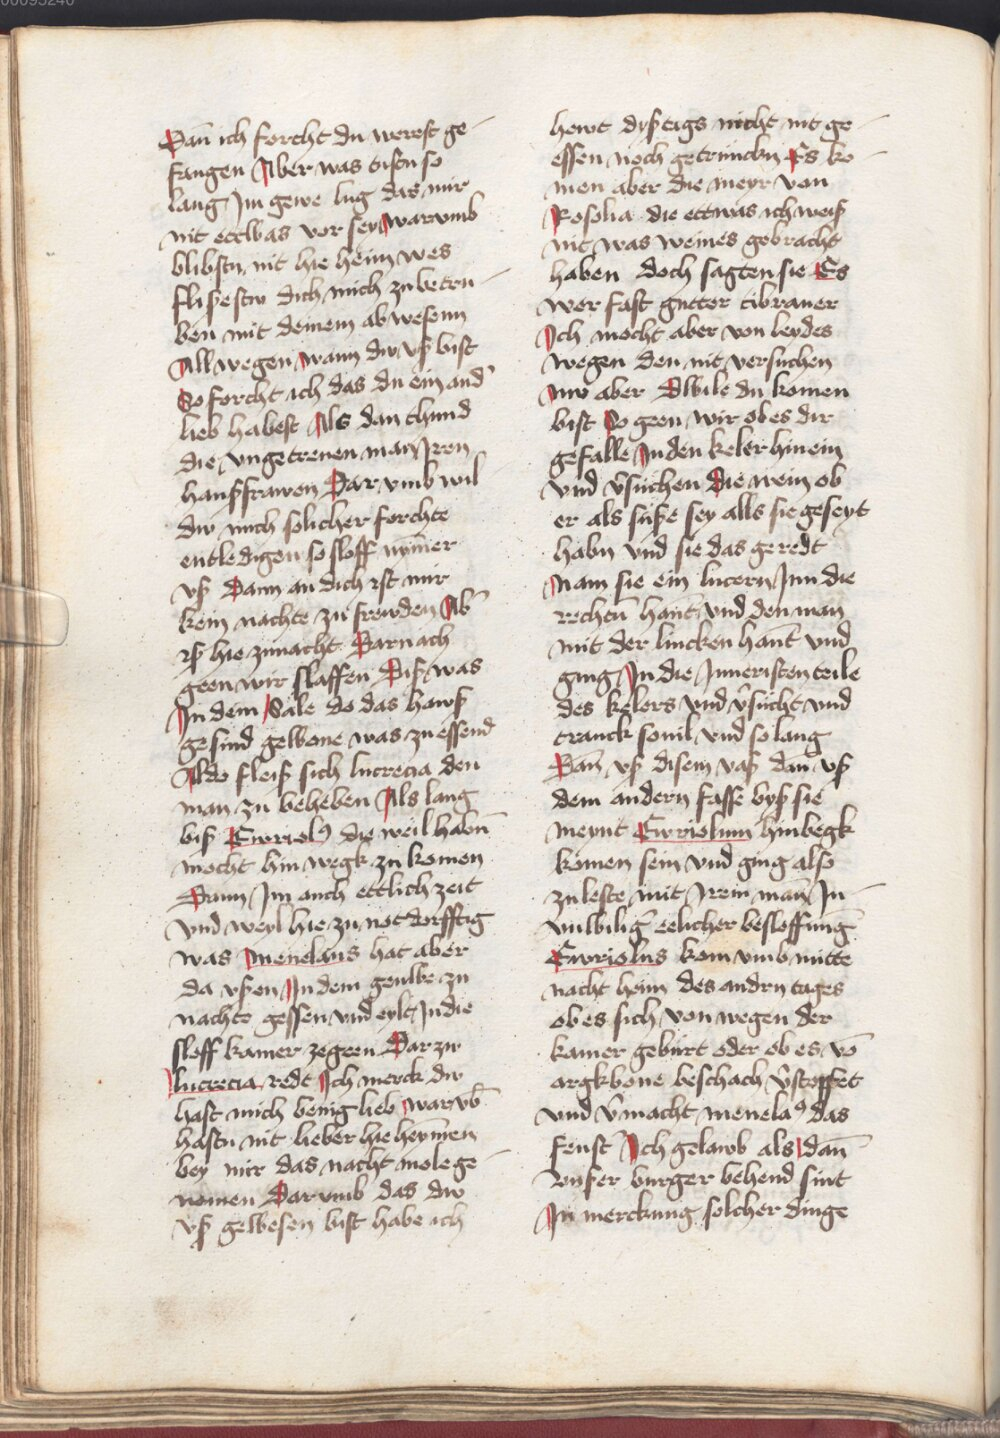 00095240
Dan̄ ich forcht du werest ge-
fangen Aber was bistu so
lang Im gewe lug das mir
nit ettwas vor sey warumb
blibstu nit hie heim wes
flissestw dich mich zu betru-
ben mit deinem abwesenn
Allwegen wann dw vß bist
So forcht ich das du ein and̛
lieb habest Als dan thund
die vngetrewen man Iren
haußfrawen Dar vmb wil
dw mich solicher forchte
entledigen so sloff nym̄er
vß Dann an dich ist mir
kein nachte zu frewden Ab̛
yß hie zunacht Darnach
geen wir slaffen Diß was
In dem Sale do das hawß
gesind gewone was zu essend
Aldo fleiß sich lucrecia den
man zu beheben Als lang
biß Ewriolꝰ die weil habn̄
mocht hin wegk zu komen
Dann Im auch ettlich zeit
vnd weyl hie zu notdorfftig
was Menelaus hat aber
da vßen In dem gewlbe zu
nachte gessen vnd eylt In die
sloff kamer zegeen Dar zw
lucrecia redt Ich merck dw
hast mich wenig lieb warvb̄
hastu nit lieber hie heymen
bey mir das nacht mole ge-
nomen Darumb das dw
vß gewesen bist habe ich
hewt dyß tags nicht nit ge-
essen noch getrunckn Es ko-
men aber die meyr von
Rosolia die ettwas ich weiß
nit was weines gebracht
haben doch sagten sie Es
wer fast gutter tibraner
Ich mocht aber von leydes
wegen den nit versuchen
Nw aber Dwile du komen
bist So geen wir ob es dir
gefalle In den keler hinein
vnd v̄suchen Die wein ob
er als susse sey alls sie geseyt
habn vnd sie das geredt
Nam sie ein lucern Inn die
rechtn̄ hant vnd den man
mit der lincken hant vnd
ging In die Inneristen teile
des kelers vnd v̄sucht vnd
tranck souil vnd so lang
Dan̄ vß disem vaß dan̄ vß
dem andern fasse byß sie
meynt Ewriolum hinwegk
komen sein vnd ging also
zuleste mit Irem man̄ In-
vnwilig eelicher besloffung
Ewriolus kom vmb mitte
nacht heim des andrn tages
ob es sich von wegen der
kamer geburt oder ob es vō
argkwone beschach v̄stopffet
vnd v̄macht menelaꝰ das
fenst̛ Ich gelawb als dan̄
vnser burger behend sint
In merckung solcher dinge